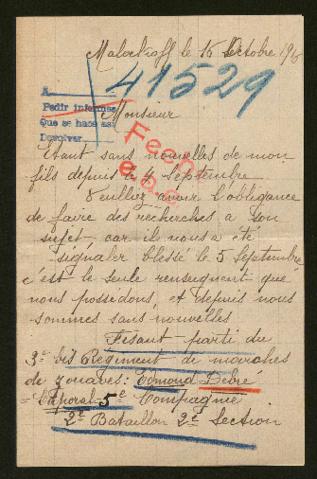 Malackoff le 15 Octobre 191
41529
A
Pedir informes
Que se hace así
Devolver
Monsieur
Etant sans nouvelles de mon
fils depuis le 4 Septembre
Veuillez avoir l'obligeance
de faire des recherches a son
sujet car il nous a été
signaler blessé le 5 Septembre
c'est le seule renseignent que
nous possedons, et depuis nous
sommes sans nouvelles
Fesant parti du
3e bis Regiment de marches
de zouaves: Edmond Debré
Caporal 5e Compagnie
2e Bataillon 2e Section